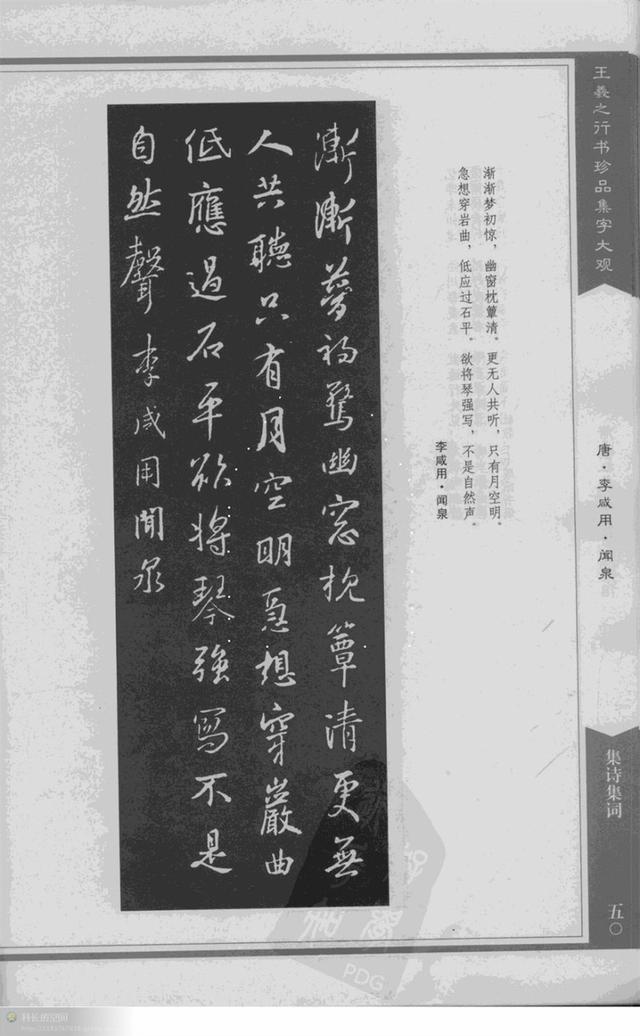 王羲之行书珍品集字大观
唐·李咸用·闻泉
集诗集词
五〇
渐渐梦初惊，幽窗枕簟清。更无人共听，只有月空明。
急想穿岩曲，低应过石平。欲将琴强写，不是自然声。
李咸用·闻泉
漸漸夢初驚幽窓枕簟清更無
人共聽只有月空明急想穿巖曲
低應過石平欲將琴強寫不是
自然聲李咸用聞泉
PDG
科长的空间